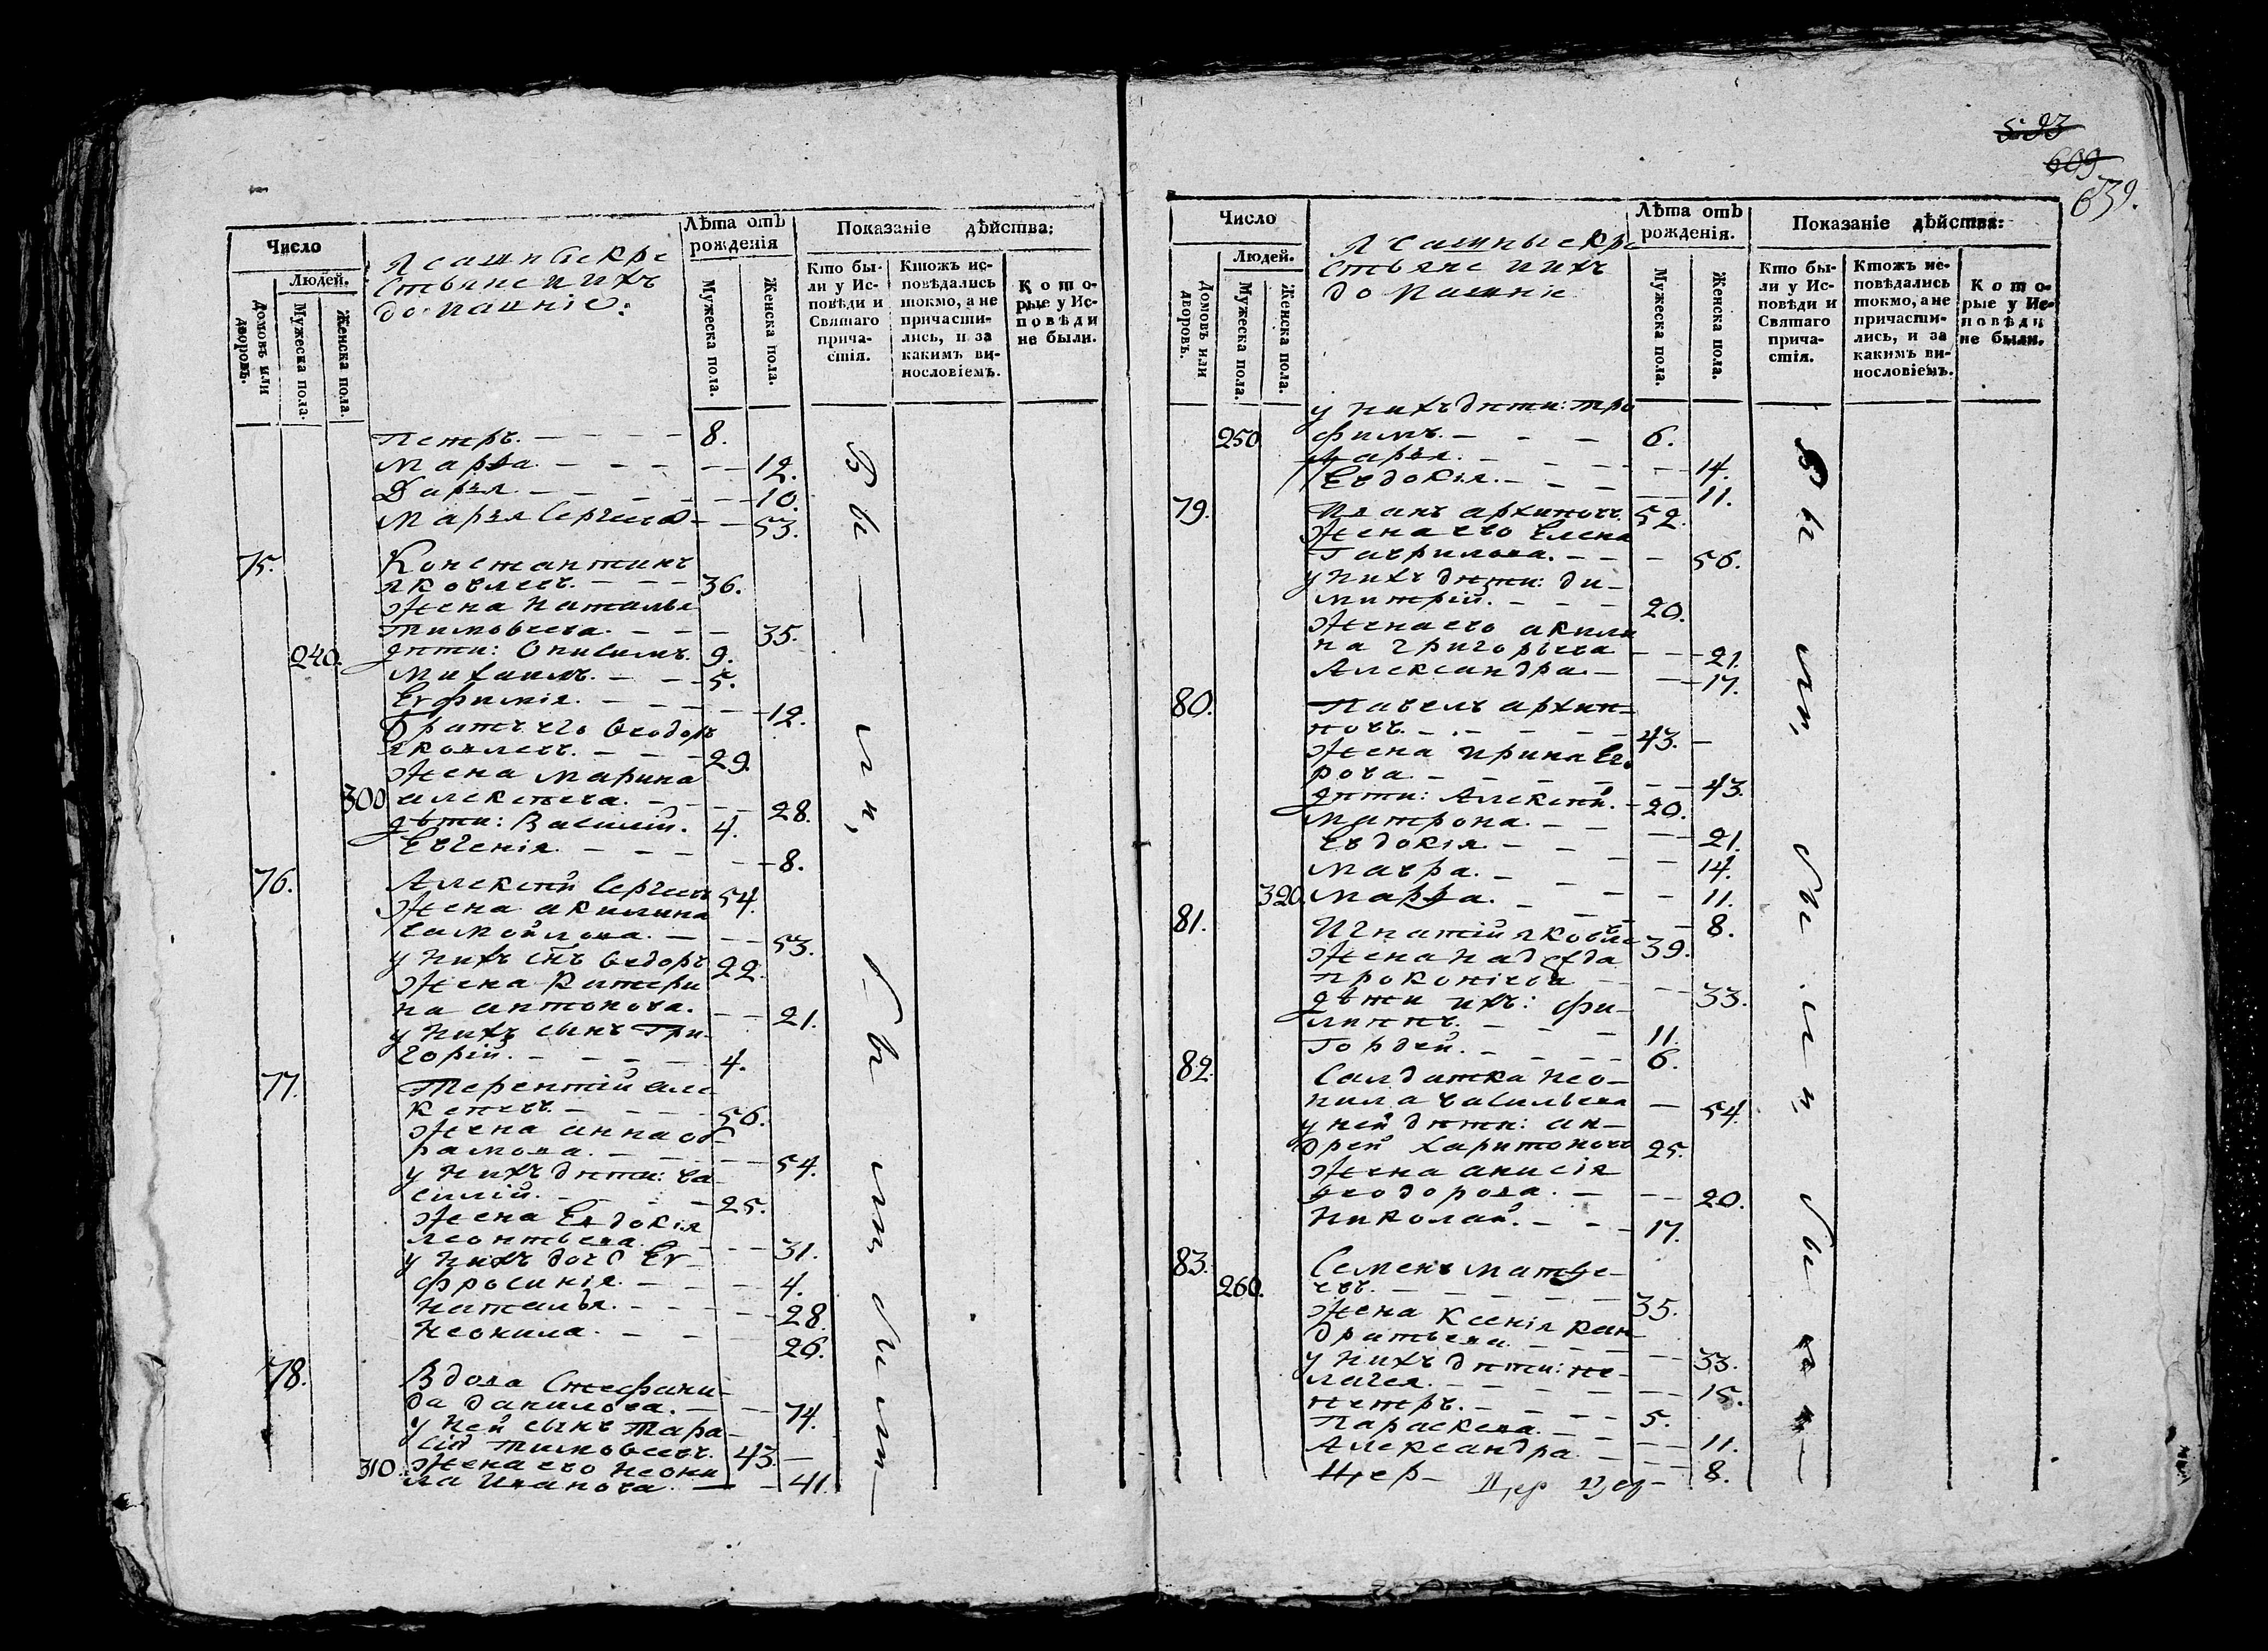 Число
Людей.
Домовъ или дворовъ.
Мужеска пола.
Женска пола.
Ясашныекре
стьяне ихъ
домашніе:
Лѣта отъ
рожденія
Мужеска пола.
Женска пола.
Показаніе дѣйства:
Кто бы-
ли у Ис-
повѣди и
Святаго
прича-
стія.
Ктожъ ис-
повѣдались
токмо, а не
причасти-
лись, и за
какимъ ви-
нословіемъ.
Кото-
рые у Ис-
повѣди
не были.
Петръ. 8.
Марѳа. 12.
Дарья. 10.
Марья Сергиева 53.
75. Константинъ
яковлевъ. 36.
Жена Наталья
Тимоѳеева. 35.
240. дѣти: Онисимъ. 9.
Михаилъ. 5.
Евфимія. 12.
Братъ его Ѳеодоръ
яковлевъ. 29.
Жена Марина
300 алексѣева. 28.
дѣти: Василій. 4.
Евгенія. 8.
76. Алексѣй Сергиевъ 54.
Жена акилина
самойлова. 53.
у нихъ снъ Ѳедоръ 22.
Жена Катери
на антонова. 21.
у нихъ сынъ Гри-
горій. 4.
77. Терентій але
ксѣевъ. 56.
Жена анна аб
рамова. 54.
у нихъ дѣти: ва
силій. 25.
Жена Евдокія
леонтьева. 31.
у нихъ дочь Ев-
фросинія. 4.
Наталья. 28.
Неонила. 26.
78. Вдова Стефани-
да данилова. 74.
у ней сынъ Тара-
сій Тимоѳеевъ. 43.
310. Жена его Неони
ла Иванова. 41.
Бы — ли, Бы ли, Бы ли —
593
609
639.
Число
Людей.
Домовъ или дворовъ.
Мужеска пола.
Женска пола.
Ясашныекре
стьяне ихъ
домашніе
Лѣта отъ
рожденія.
Мужеска пола.
Женска пола.
Показаніе дѣйства:
Кто бы-
ли у Ис-
повѣди и
Святаго
прича-
стія.
Ктожъ ис-
повѣдались
токмо, а не
причасти-
лись, и за
какимъ ви-
нословіемъ.
Кото-
рые у Ис-
повѣди
не были.
у нихъ дѣти: тро
250 фимъ. 6.
Марья. 14.
Евдокія. 11.
79. Иванъ архиповъ. 52.
Жена его Елена
Гаврилова. 56.
у нихъ дѣти: ди-
митрій. 20.
Жена его акили
на григорьева 21.
Александра. 17.
80. Павелъ архип-
повъ. 43.
Жена ирина Его
рова. 43.
дѣти: Алексѣй. 20.
Матрона. 21.
Евдокія. 14.
Мавра. 11.
320. Марѳа. 8.
81. Игнатій яковле 39.
Жена надежда
Прокопіева 33.
дѣти ихъ: Фи-
липпъ. 11.
Гордей. 6.
82. Салдатка Нео-
нила васильева 54.
у ней дѣти: ан-
дрей харитоновъ 25.
Жена анисія
ѳеодорова. 20.
Николай. 17.
83. Семенъ матѳе-
260. евъ. 35.
Жена Ксенія кон-
дратьева. 33.
у нихъ дѣти: пе-
лагея. 15.
петръ. 5.
Параскева. 11.
Александра. 8.
Цер- Цер Цер-
Бы ли, Бы ли, Бы